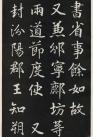 書省事餘如故
又兼邠寧鄜坊等
兩道節度使又
封汾陽郡王知朔